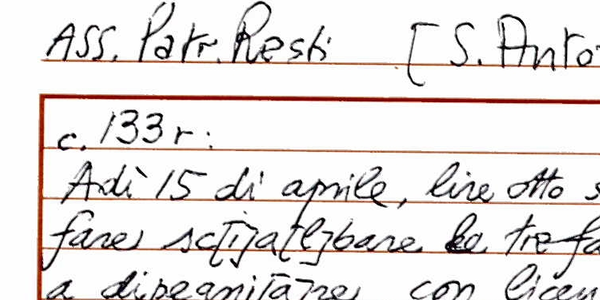 Ass. Patr. Resti [S. Anto
c. 133 r:
Adì 15 di aprile, lire otto s
fare sc[i]a[l]bare le tre fa
a con licen